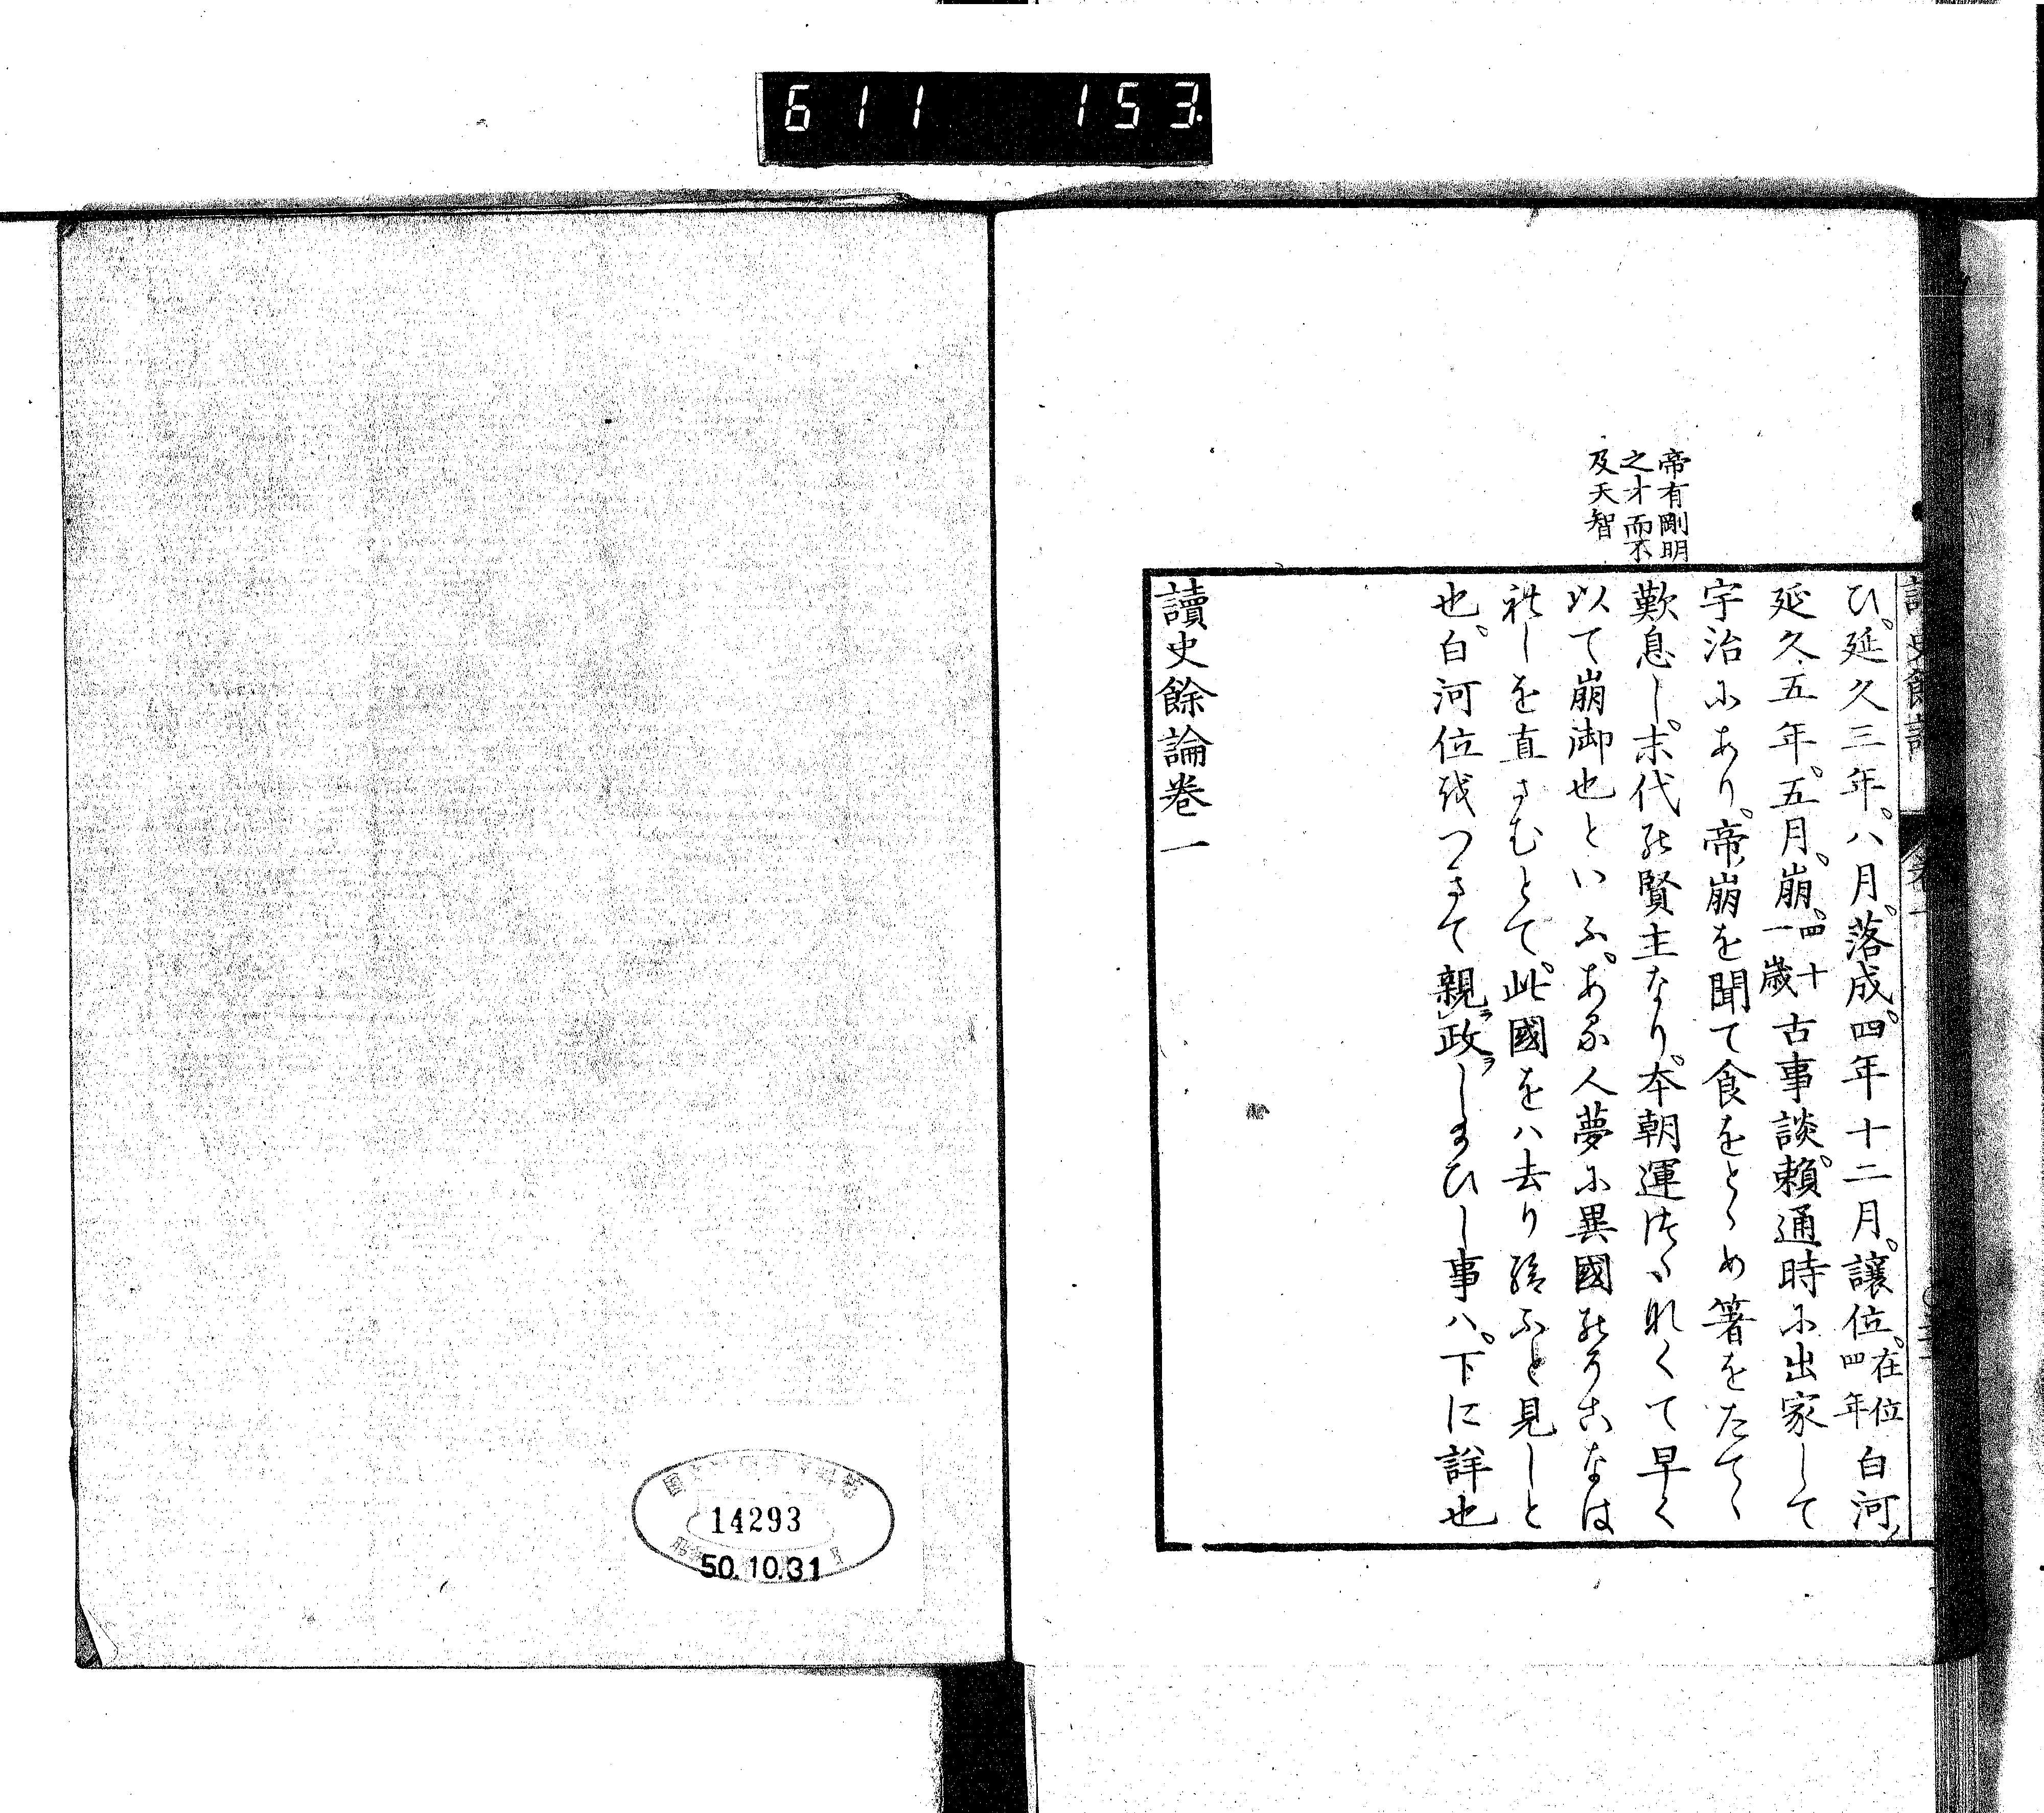 611 153.
帝有剛明
之才而不
及天智
ひ。延久三年。八月。落成。四年十二月。讓位。在位四年白河、
延久五年。五月。崩。四十一歲古事談。賴通時に出家して
宇治にあり。帝崩を聞て食をとゝめ箸をたてゝ
歎息し。末代の賢主なり。本朝運つたなくて早く
以て崩御也といふ。ある人夢に異國のうこなは
礼しを直さむとて。此國をハ去り給ふと見しと
也。白河位をつきて親ラ政ヲしまひし事ハ。下に詳也
讀史餘論卷一
14293
50.10.31